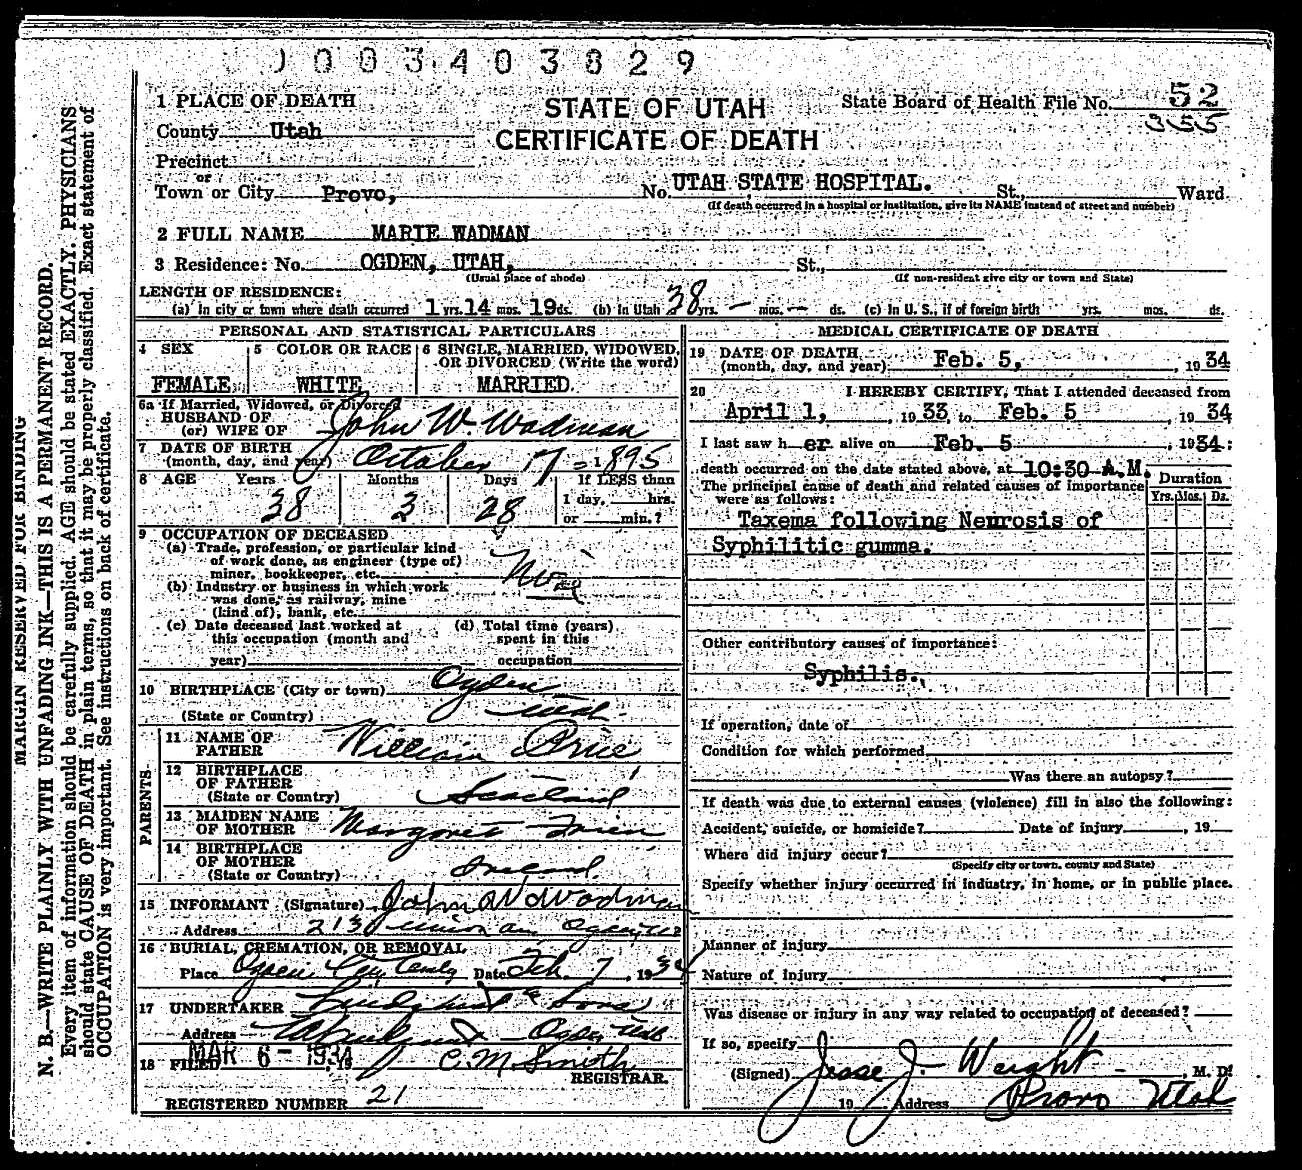 0003403829
1 PLACE OF DEATH
STATE OF UTAH
CERTIFICATE OF DEATH
State Board of Health File No. 52
355
County Utah
Precinct
or
Town or City Provo,
No. UTAH STATE HOSPITAL. St., Ward
(If death occurred in a hospital or institution, give its NAME instead of street and number)
2 FULL NAME MARIE WADMAN
3 Residence: No. OGDEN, UTAH, St.,
(Usual place of abode) (If non-resident give city or town and State)
LENGTH OF RESIDENCE:
(a) In city or town where death occurred 1 yrs. 14 mos. 19 ds. (b) In Utah 38 yrs. — mos. — ds. (c) In U. S., if of foreign birth yrs. mos. ds.
PERSONAL AND STATISTICAL PARTICULARS
4 SEX 5 COLOR OR RACE 6 SINGLE, MARRIED, WIDOWED,
OR DIVORCED (Write the word)
FEMALE WHITE MARRIED
6a If Married, Widowed, or Divorced
HUSBAND OF
(or) WIFE OF John W Wadman
7 DATE OF BIRTH
(month, day, and year) October 17 - 1895
8 AGE Years Months Days If LESS than
38 3 28 1 day, hrs.
or min.?
9 OCCUPATION OF DECEASED
(a) Trade, profession, or particular kind
of work done, as engineer (type of)
miner, bookkeeper, etc.
(b) Industry or business in which work
was done, as railway, mine
(kind of), bank, etc.
(c) Date deceased last worked at (d) Total time (years)
this occupation (month and spent in this
year) occupation
10 BIRTHPLACE (City or town) Ogden
(State or Country) Utah.
PARENTS
11 NAME OF
FATHER William Price
12 BIRTHPLACE
OF FATHER
(State or Country) Scotland
13 MAIDEN NAME
OF MOTHER Margaret
14 BIRTHPLACE
OF MOTHER
(State or Country) Ireland.
15 INFORMANT (Signature) John W Wadman
Address 213 Union av Ogden, Ut
16 BURIAL, CREMATION, OR REMOVAL
Place Ogden City Date Feb. 7, 1934
17 UNDERTAKER Lindquist & Sons
Address Ogden Utah
18 FILED MAR 6 - 1934, 19 C. M. Smith
REGISTRAR.
REGISTERED NUMBER 21
MEDICAL CERTIFICATE OF DEATH
19 DATE OF DEATH
(month, day, and year) Feb. 5, , 1934
20 I HEREBY CERTIFY, That I attended deceased from
April 1, , 1933, to Feb. 5 , 1934
I last saw her alive on Feb. 5 , 1934:
death occurred on the date stated above, at 10:30 A.M.
The principal cause of death and related causes of importance
were as follows:
Duration
Yrs. Mos. Ds.
Taxema following Neurosis of
Syphilitic gumma.
Other contributory causes of importance:
Syphilis.
If operation, date of
Condition for which performed
Was there an autopsy?
If death was due to external causes (violence) fill in also the following:
Accident, suicide, or homicide? Date of injury , 19
Where did injury occur?
(Specify city or town, county and State)
Specify whether injury occurred in industry, in home, or in public place.
Manner of injury
Nature of injury
Was disease or injury in any way related to occupation of deceased?
If so, specify
(Signed) Jesse J. Weight , M. D.
19 Address Provo Utah
MARGIN RESERVED FOR BINDING
N. B.—WRITE PLAINLY WITH UNFADING INK—THIS IS A PERMANENT RECORD.
Every item of information should be carefully supplied. AGE should be stated EXACTLY. PHYSICIANS
should state CAUSE OF DEATH in plain terms, so that it may be properly classified. Exact statement of
OCCUPATION is very important. See instructions on back of certificate.